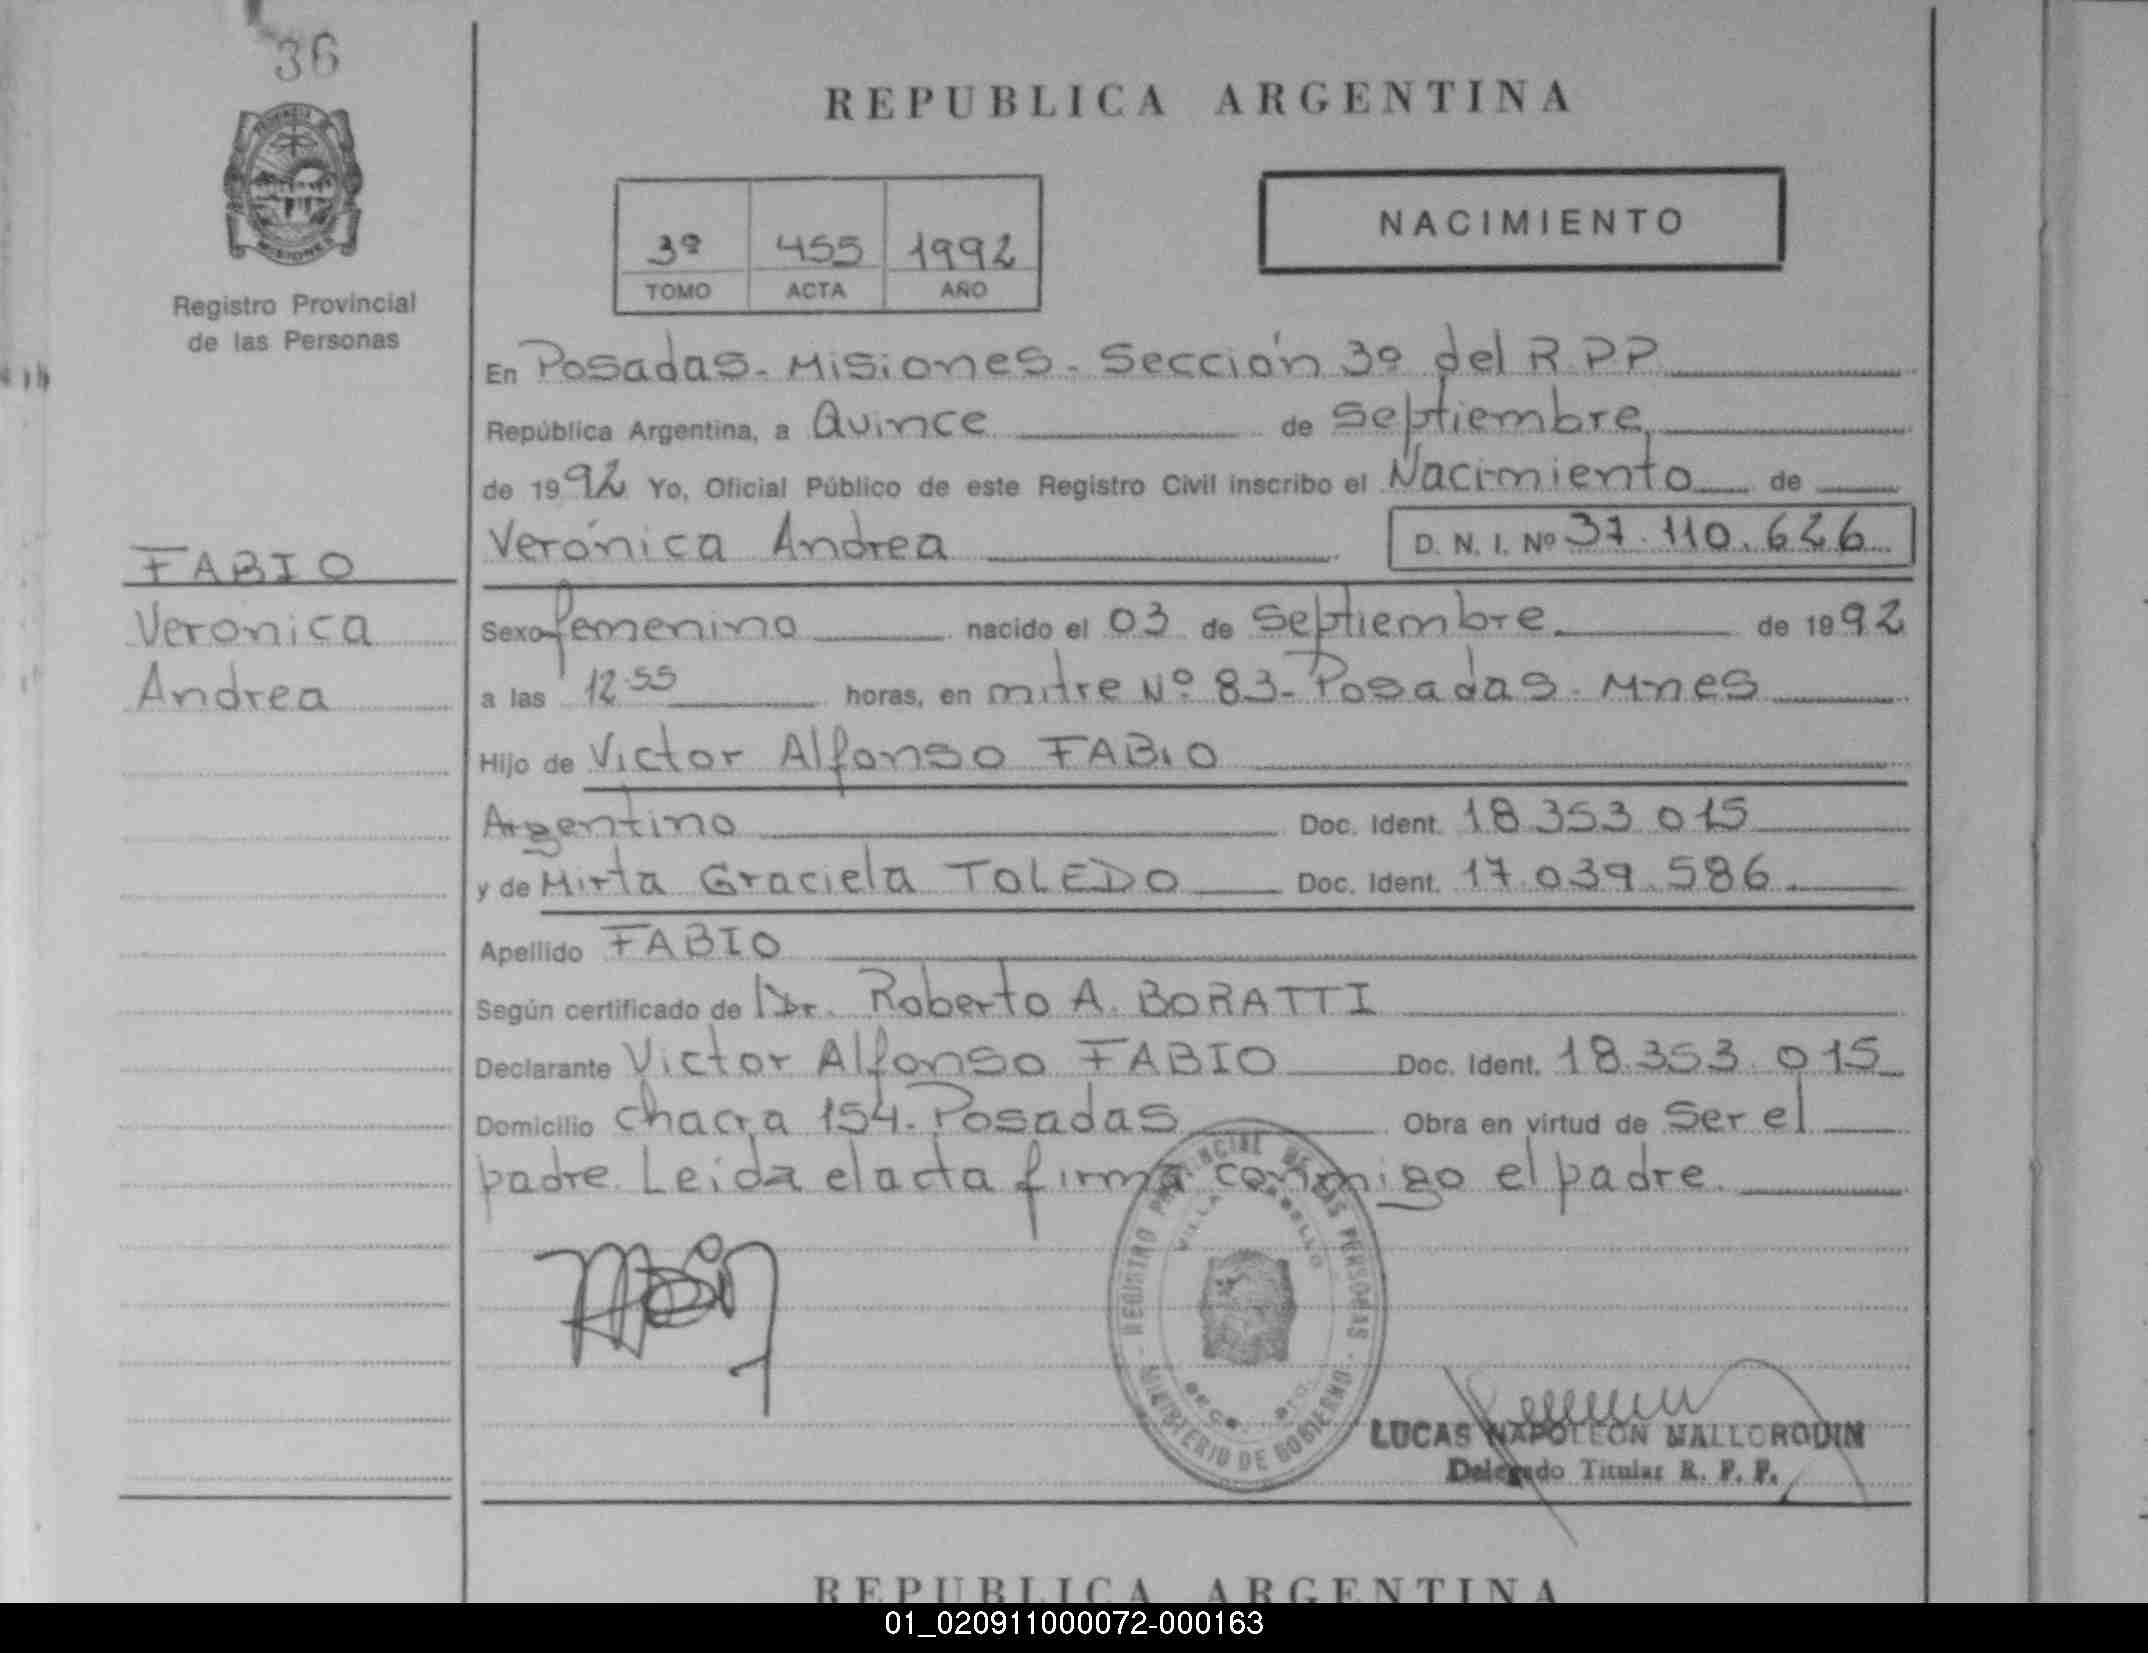 36
REPUBLICA ARGENTINA
NACIMIENTO
3º 455 1992
TOMO ACTA AÑO
Registro Provincial
de las Personas
En Posadas - Misiones - Sección 3º del R.P.P.
República Argentina, a Quince de Septiembre
de 1992 Yo, Oficial Público de este Registro Civil inscribo el Nacimiento de
Verónica Andrea D. N. I. Nº 37.110.626
FABIO
Veronica
Andrea
Sexo femenino nacido el 03 de Septiembre de 1992
a las 12.55 horas, en mitre Nº 83 - Posadas - Mnes
Hijo de Victor Alfonso FABIO
Argentino Doc. Ident. 18.353.015
y de Mirta Graciela TOLEDO Doc. Ident. 17.039.586.
Apellido FABIO
Según certificado de Dr. Roberto A. BORATTI
Declarante Victor Alfonso FABIO Doc. Ident. 18.353.015
Domicilio chacra 154. Posadas Obra en virtud de Ser el
padre. Leida el acta firma conmigo el padre.
REGISTRO PROVINCIAL DE LAS PERSONAS
MINISTERIO DE GOBIERNO
LUCAS NAPOLEON MALLORQUIN
Delegado Titular R. P. P.
REPUBLICA ARGENTINA
01_020911000072-000163